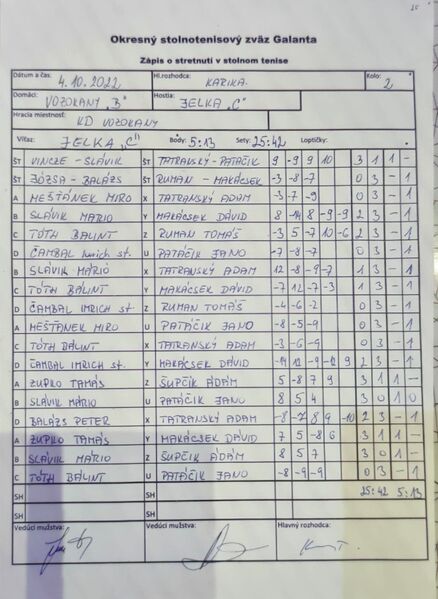 Okresný stolnotenisový zväz Galanta
Zápis o stretnutí v stolnom tenise
Dátum a čas: 4.10.2022 Hl.rozhodca: KARIKA. Kolo: 2
Domáci: VOZOKANY "B" Hostia: JELKA "C"
Hracia miestnosť: KD VOZOKANY
Víťaz: JELKA "C" Body: 5:13 Sety: 25:42 Loptičky:
ŠT VINCZE - SLÁVIK ŠT TATRANSKÝ - PATÁČIK 9 -9 9 10 3 1 1 -
ŠT JÓZSA - BALÁZS ŠT RUMAN - MAKÁCSEK -3 -8 -7 0 3 - 1
A MEŠTÁNEK MIRO X TATRANSKÝ ADAM -3 -7 -9 0 3 - 1
B SLÁVIK MARIO Y MAKÁCSEK DÁVID 8 -14 8 -9 -9 2 3 - 1
C TÓTH BÁLINT Z RUMAN TOMÁŠ -3 5 -7 10 -6 2 3 - 1
D ČAMBAL Imrich st. U PATÁČIK JANO -7 -8 -7 0 3 - 1
B SLÁVIK MÁRIO X TATRANSKÝ ADAM 12 -8 -9 -7 1 3 - 1
C TÓTH BÁLINT Y MAKÁCSEK DÁVID -7 12 -7 -3 1 3 - 1
D ČAMBAL IMRICH st. Z RUMAN TOMÁŠ -4 -6 -2 0 3 - 1
A MEŠTÁNEK MIRO U PATÁČIK JANO -8 -5 -9 0 3 - 1
C TÓTH BÁLINT X TATRANSKÝ ADAM -3 -6 -9 0 3 - 1
D ČAMBAL IMRICH st. Y MAKÁCSEK DÁVID 2 3 - 1
A ZUPKO TAMÁS Z ŠUPČÍK ÁDÁM 5 -8 7 9 3 1 1 -
B SLÁVIK MÁRIO U PATÁČIK JANO 8 5 4 3 0 1 0
D BALÁZS PETER X TATRANSKÝ ADAM -8 -7 8 9 -10 2 3 - 1
A ZUPKO TAMÁS Y MAKÁCSEK DÁVID 7 5 -8 6 3 1 1 -
B SLÁVIK MÁRIO Z ŠUPČÍK ÁDÁM 8 5 7 3 0 1 -
C TÓTH BÁLINT U PATÁČIK JANO -8 -9 -9 0 3 - 1
SH SH 25:42 5:13
SH SH
Vedúci mužstva: Vedúci mužstva: Hlavný rozhodca: